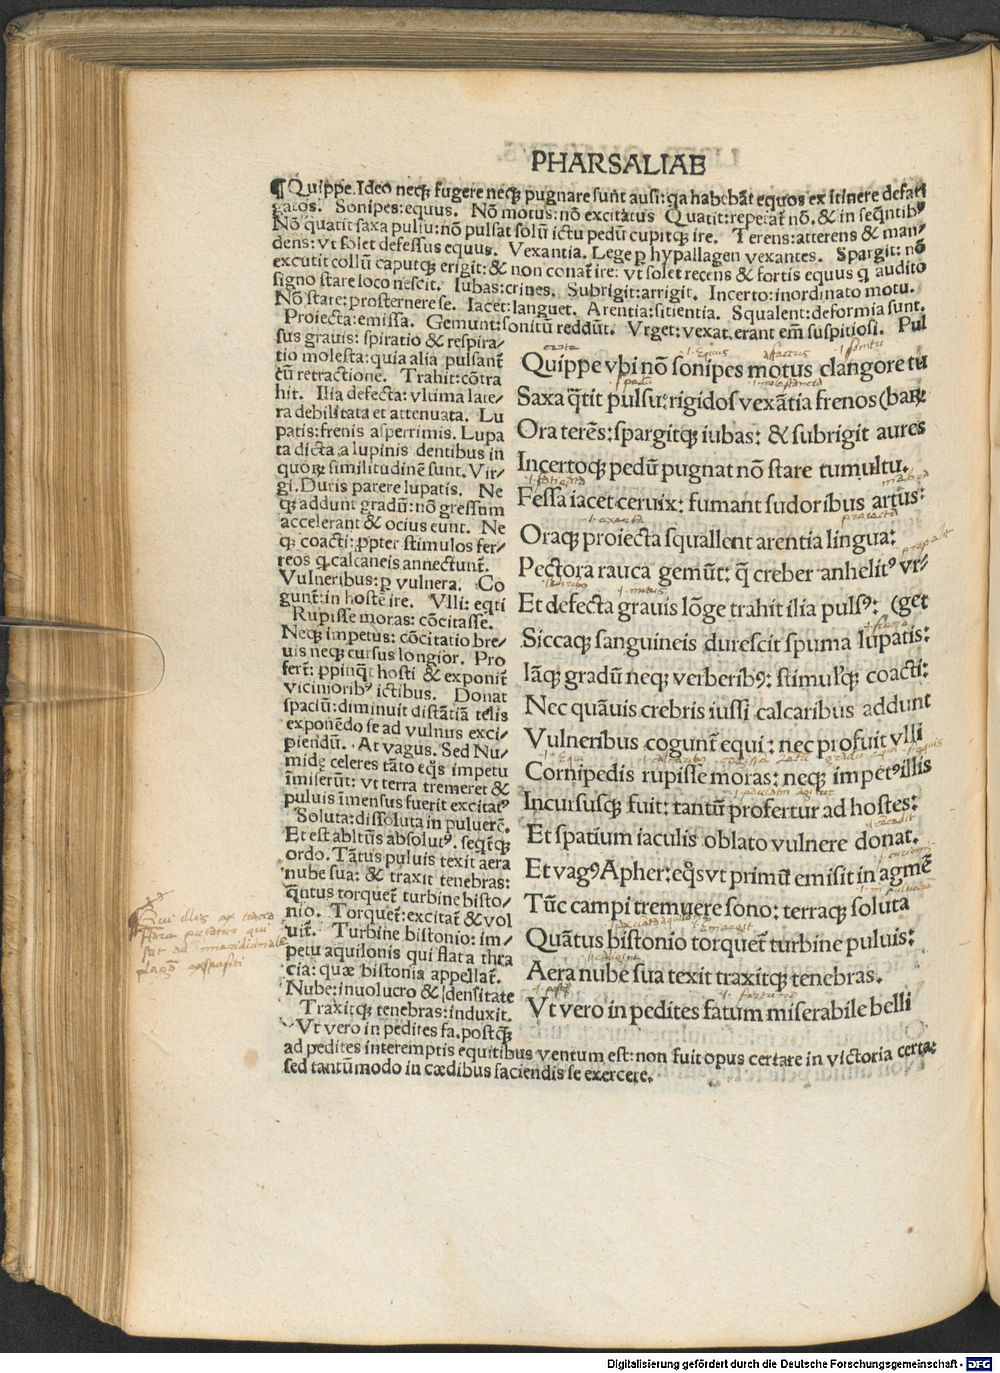 PHARSALIAE
¶Quippe. Ideo neqꝫ fugere neqꝫ pugnare sunt ausi: qa habebāt equos ex itinere defati
gatos. Sonipes: equus. Nō motus: nō excitatus Quatit: repetat̄ nō. & in seq̄ntibꝰ
Nō quatit saxa pulsu: nō pulsat solū ictu pedū cupitqꝫ ire. Terens: atterens & man/
dens: vt solet defessus equus. Vexantia. Lege ꝑ hypallagen vexantes. Spargit: nō
excutit collū caputqꝫ erigit: & non conat̄ ire: vt solet recens & fortis equus q audito
signo stare loco nescit. Iubas: crines. Subrigit: arrigit. Incerto: inordinato motu.
Nō stare: prosternere se. Iacet: languet. Arentia: sitientia. Squalent: deformia sunt.
Proiecta: emissa. Gemunt: sonitū reddūt. Vrget: vexat. erant em̄ suspitiosi. Pul
sus grauis: spiratio & respira/
tio molesta: quia alia pulsant̄
cū retractione. Trahit: cōtra
hit. Ilia defecta: vltima late/
ra debilitata et attenuata. Lu
patis: frenis asperrimis. Lupa
ta dicta a lupinis dentibus in
quoꝝ similitudinē sunt. Vir/
gi. Duris parere lupatis. Ne
qꝫ addunt gradū: nō gressum
accelerant & ocius eunt. Ne
qꝫ coacti: ꝓpter stimulos fer/
reos q calcaneis annectunt̄.
Vulneribus: ꝑ vulnera. Co
gunt̄: in hostē ire. Vlli: eqti
Rupisse moras: cōcitasse.
Neqꝫ impetus: cōcitatio bre/
uis neqꝫ cursus longior. Pro
fert̄: ꝓpinq̄t hosti & exponit̄
vicinioribꝰ ictibus. Donat
spaciū: diminuit distātiā telis
exponēdo se ad vulnus exci/
piendū. At vagus. Sed Nu/
midę celeres tāto eqs impetu
īmiserūt: vt terra tremeret &
puluis īmensus fuerit excitatꝰ
Soluta: dissoluta in puluerē.
Et est abltūs absolutꝰ. seqt̄qꝫ
ordo. Tātus puluis texit aera
nube sua: & traxit tenebras:
q̄ntus torquet̄ turbine bisto/
nio. Torquet̄: excitat̄ & vol
uit̄. Turbine bistonio: im/
petu aquilonis qui flat a thra
cia: quæ bistonia appellat̄.
Nube: inuolucro & densitate
Traxitqꝫ tenebras: induxit.
Vt vero in pedites fa. postqꝫ
ad pedites interemptis equitibus ventum est: non fuit opus certare in victoria certa:
sed tantūmodo in cædibus faciendis se exercere.
Quippe vbi nō sonipes motus clangore tu
Saxa q̄tit pulsu: rigidos vexātia frenos (baꝝ
Ora terēs: spargitqꝫ iubas: & subrigit aures
Incertoqꝫ pedū pugnat nō stare tumultu.
Fessa iacet ceruix: fumant sudoribus artus:
Oraqꝫ proiecta squallent arentia lingua:
Pectora rauca gemūt: q̄ creber anhelitꝰ vr/
Et defecta grauis lōge trahit ilia pulsꝰ: (get
Siccaqꝫ sanguineis durescit spuma lupatis:
Iāqꝫ gradū neqꝫ verberibꝰ: stimul'qꝫ coacti:
Nec quāuis crebris iussi calcaribus addunt
Vulneribus cogunt̄ equi: nec profuit vlli
Cornipedis rupisse moras: neqꝫ impetꝰ illis
Incursusqꝫ fuit: tantū profertur ad hostes:
Et spatium iaculis oblato vulnere donat.
At vagꝰ Apher: eqs vt primū emisit in agmē
Tūc campi tremuere sono: terraqꝫ soluta
Quātus bistonio torquet̄ turbine puluis:
Aera nube sua texit traxitqꝫ tenebras.
Vt vero in pedites fatum miserabile belli
Digitalisierung gefördert durch die Deutsche Forschungsgemeinschaft - DFG